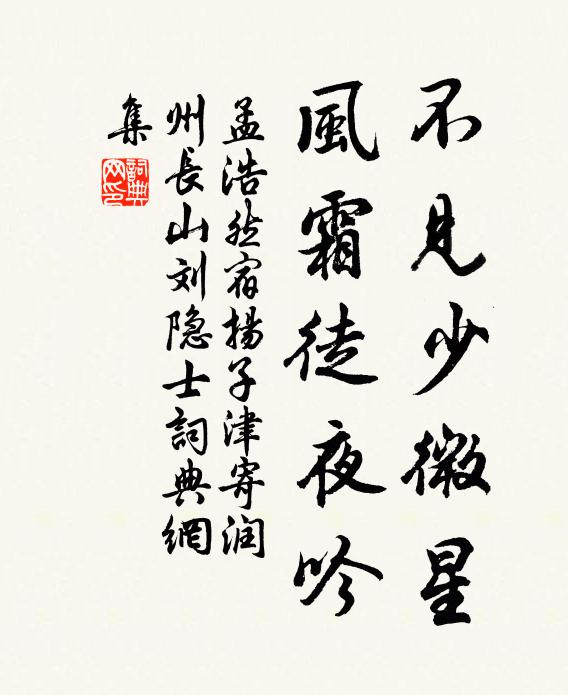 不見少微星
風霜徒夜吟
孟浩然宿揚子津寄润
州長山刘隐士詞典網
集
詞典
网印